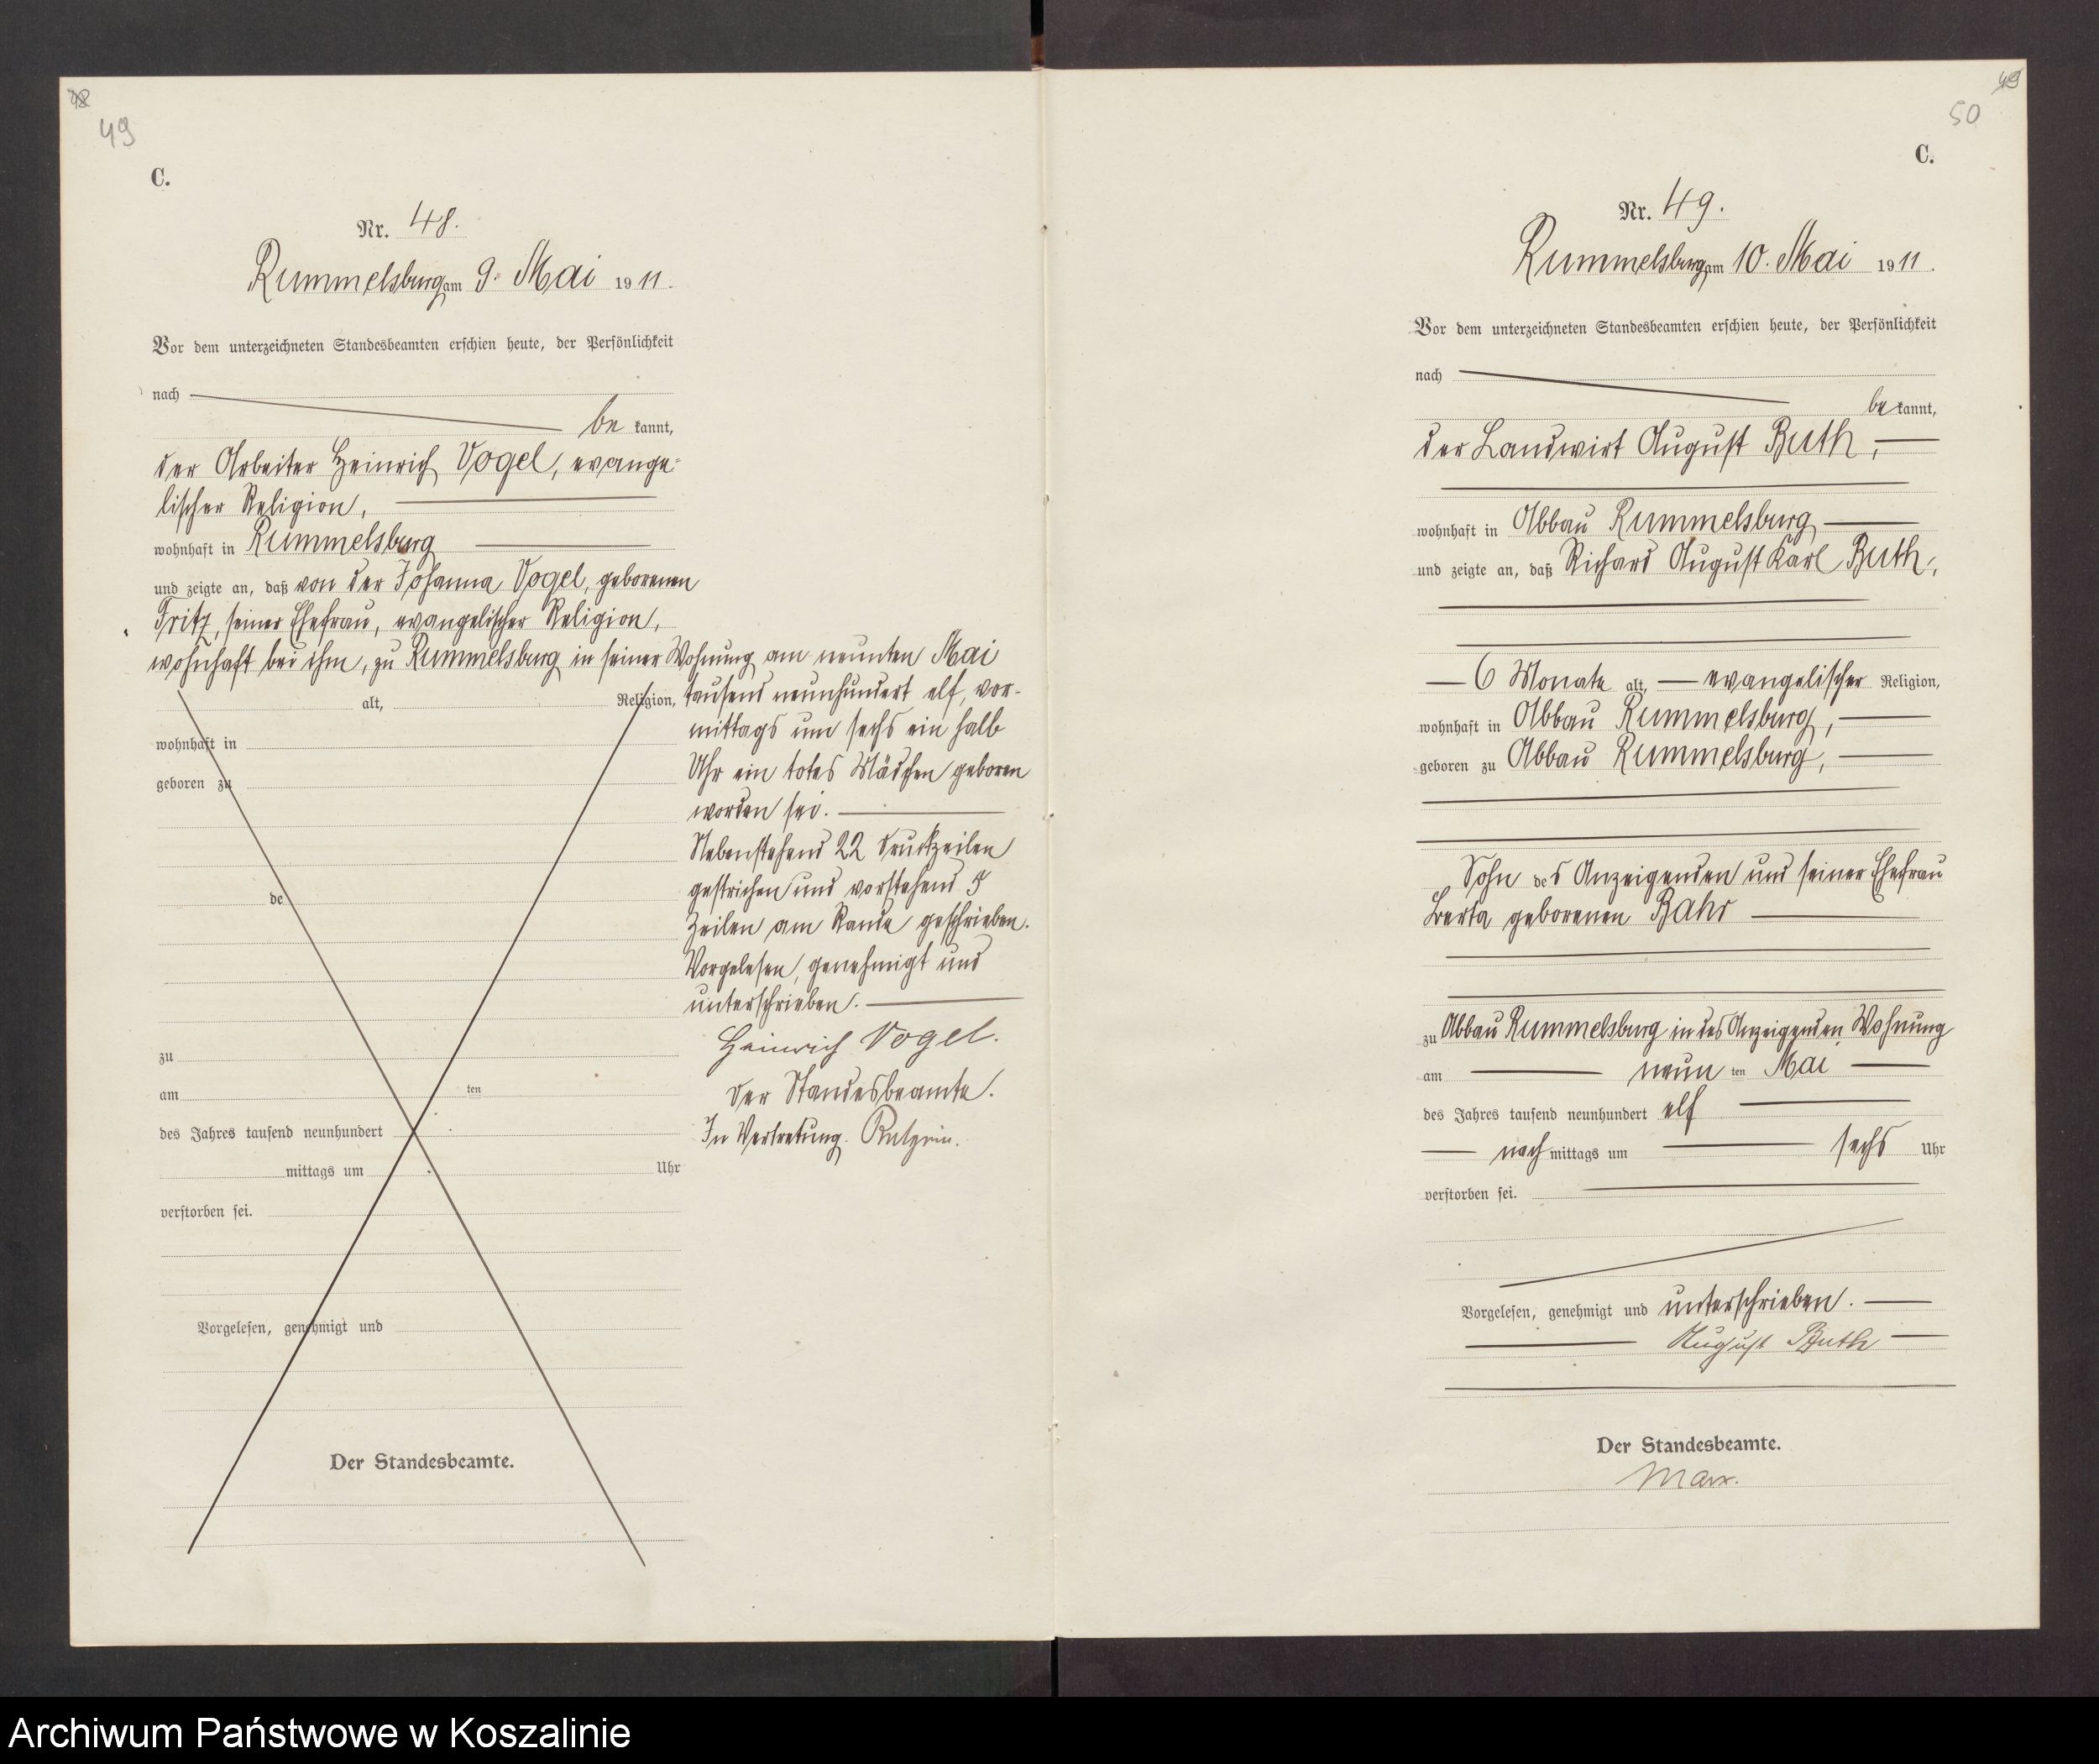 48
49
C.
Nr. 48.
Rummelsburg am 9. Mai 1911.
Vor dem unterzeichneten Standesbeamten erschien heute, der Persönlichkeit
nach
be kannt,
der Arbeiter Heinrich Vogel, evange-
lischer Religion,
wohnhaft in Rummelsburg
und zeigte an, daß von der Johanna Vogel, geborenen
Fritz, seiner Ehefrau, evangelischer Religion,
wohnhaft bei ihm, zu Rummelsburg in seiner Wohnung am neunten Mai
alt, Religion,
wohnhaft in
geboren zu
de
zu
am ten
des Jahres tausend neunhundert
mittags um Uhr
verstorben sei.
Vorgelesen, genehmigt und
Der Standesbeamte.
tausend neunhundert elf, vor-
mittags um sechs ein halb
Uhr ein totes Mädchen geboren
worden sei.
Nebenstehend 22 Druckzeilen
gestrichen und vorstehend 5
Zeilen am Rande geschrieben.
Vorgelesen, genehmigt und
unterschrieben.
Heinrich Vogel.
Der Standesbeamte.
In Vertretung.
49
50
C.
Nr. 49.
Rummelsburg am 10. Mai 1911.
Vor dem unterzeichneten Standesbeamten erschien heute, der Persönlichkeit
nach
be kannt,
der Landwirt August Buth,
wohnhaft in Abbau Rummelsburg
und zeigte an, daß Richard August Karl Buth,
6 Monate alt, evangelischer Religion,
wohnhaft in Abbau Rummelsburg,
geboren zu Abbau Rummelsburg,
Sohn des Anzeigenden und seiner Ehefrau
Berta geborenen Bahr
zu Abbau Rummelsburg in des Anzeigenden Wohnung
am neun ten Mai
des Jahres tausend neunhundert elf
nach mittags um sechs Uhr
verstorben sei.
Vorgelesen, genehmigt und unterschrieben.
August Buth
Der Standesbeamte.
Marx.
Archiwum Państwowe w Koszalinie